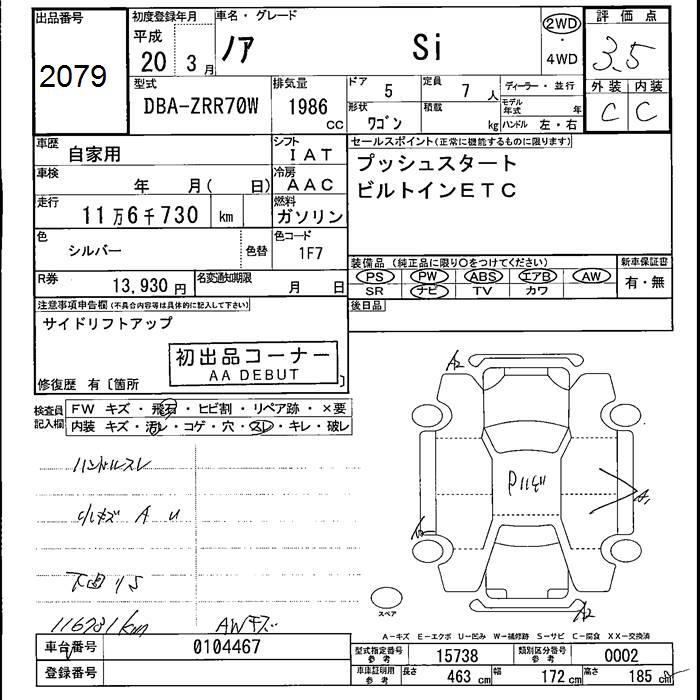 出品番号
2079
初度登録年月
平成
20 3月
車名・グレード
ノア Si
2WD
・
4WD
評価点
3.5
外装 内装
C C
型式
DBA-ZRR70W
排気量
1986
CC
ドア
5
定員
7 人
形状
ワゴン
積載
kg
ディーラー・並行
モデル年式 年
ハンドル 左・右
車歴
自家用
シフト
IAT
車検
年 月( 日)
冷房
AAC
走行
11万6千730 km
燃料
ガソリン
色
シルバー
色替
色コード
1F7
R券
13,930円
名変通知期限
月 日
セールスポイント(正常に機能するものに限ります)
プッシュスタート
ビルトインETC
装備品(純正品に限り○をつけてください)
PS PW ABS エアB AW
SR ナビ TV カワ
新車保証書
有・無
後日品
注意事項申告欄(不具合内容等は具体的に記入して下さい)
サイドリフトアップ
初出品コーナー
AA DEBUT
修復歴 有〔箇所 〕
検査員記入欄
FW キズ・飛石・ヒビ割・リペア跡・×要
内装 キズ・汚レ・コゲ・穴・スレ・キレ・破レ
ハンドルスレ
小キズ A U
下回りS
116731km
AWキズ
A2
A1
A2
スペア
A-キズ E-エクボ U-凹み W-補修跡 S-サビ C-腐食 XX-交換済
車台番号
0104467
登録番号
型式指定番号
参考
15738
類別区分番号
参考
0002
車庫証明用
参考
長さ 463 cm
幅 172 cm
高さ 185 cm